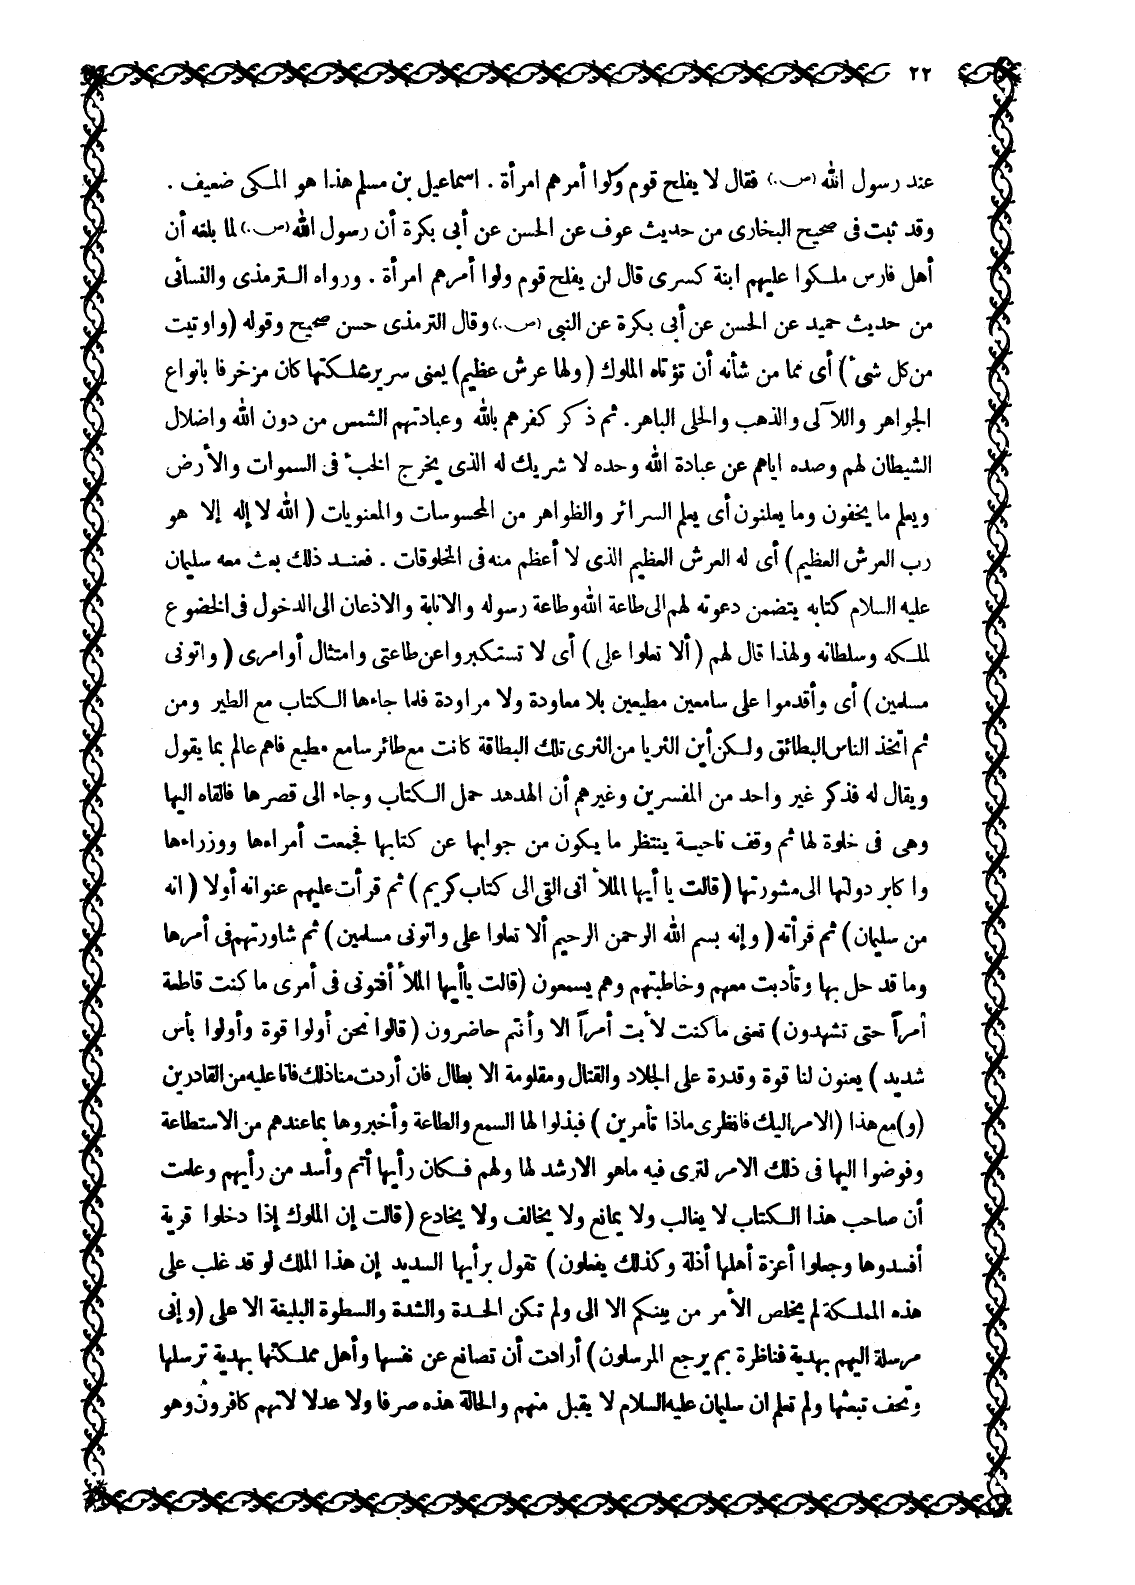 ٢٢
عند رسول الله (ص.) فقال لا يفلح قوم ولوا أمرهم امرأة . اسماعيل بن مسلم هذا هو المكى ضعيف .
وقد ثبت فى صحيح البخارى من حديث عوف عن الحسن عن أبى بكرة أن رسول الله (ص.) لما بلغه أن
أهل فارس ملكوا عليهم ابنة كسرى قال لن يفلح قوم ولوا أمرهم امرأة . ورواه الترمذى والنسائى
من حديث حميد عن الحسن عن أبى بكرة عن النبى (ص.) وقال الترمذى حسن صحيح وقوله (واوتيت
من كل شئ) أى مما من شأنه أن تؤتاه الملوك (ولها عرش عظيم) يعنى سرير مملكتها كان مزخرفا بانواع
الجواهر واللآلى والذهب والحلى الباهر. ثم ذكر كفرهم بالله وعبادتهم الشمس من دون الله واضلال
الشيطان لهم وصده اياهم عن عبادة الله وحده لا شريك له الذى يخرج الخبأ فى السموات والأرض
ويعلم ما يخفون وما يعلنون أى يعلم السرائر والظواهر من المحسوسات والمعنويات ( الله لا إله إلا هو
رب العرش العظيم) أى له العرش العظيم الذى لا أعظم منه فى المخلوقات . فعند ذلك بعث معه سليمان
عليه السلام كتابه يتضمن دعوته لهم الى طاعة الله وطاعة رسوله والانابة والاذعان الى الدخول فى الخضوع
لملكه وسلطانه ولهذا قال لهم ( ألا تعلوا على ) أى لا تستكبروا عن طاعتى وامتثال أوامرى ( واتونى
مسلمين) أى وأقدموا على سامعين مطيعين بلا معاودة ولا مراودة فلما جاءها الكتاب مع الطير ومن
ثم اتخذ الناس البطائق ولكن أين الثريا من الثرى تلك البطاقة كانت مع طائر سامع مطيع فاهم عالم بما يقول
ويقال له فذكر غير واحد من المفسرين وغيرهم أن الهدهد حمل الكتاب وجاء الى قصرها فالقاه اليها
وهى فى خلوة لها ثم وقف ناحية ينتظر ما يكون من جوابها عن كتابها فجمعت أمراءها ووزراءها
واكابر دولتها الى مشورتها ( قالت يا أيها الملأ انى القى الى كتاب كريم ) ثم قرأت عليهم عنوانه أولا ( انه
من سليمان) ثم قرأته ( وإنه بسم الله الرحمن الرحيم ألا تعلوا على واتونى مسلمين) ثم شاورتهم فى أمرها
وما قد حل بها وتأدبت معهم وخاطبتهم وهم يسمعون (قالت ياأيها الملأ أفتونى فى أمرى ما كنت قاطعة
أمراً حتى تشهدون) تعنى ما كنت لأبت أمراً الا وأنتم حاضرون ( قالوا نحن أولوا قوة وأولوا بأس
شديد ) يعنون لنا قوة وقدرة على الجلاد والقتال ومقاومة الابطال فان أردت منا ذلك فانا عليه من القادرين
(و)مع هذا (الامر اليك فانظرى ماذا تأمرين ) فبذلوا لها السمع والطاعة وأخبروها بما عندهم من الاستطاعة
وفوضوا اليها فى ذلك الامر لترى فيه ماهو الارشد لها ولهم فكان رأيها أتم وأسد من رأيهم وعلمت
أن صاحب هذا الكتاب لا يغالب ولا يمانع ولا يخالف ولا يخادع (قالت إن الملوك إذا دخلوا قرية
أفسدوها وجعلوا أعزة أهلها أذلة وكذلك يفعلون) تقول برأيها السديد إن هذا الملك لو قد غلب على
هذه المملكة لم يخلص الأمر من بينكم الا الى ولم تكن الحدة والشدة والسطوة البليغة الا على (وإنى
مرسلة اليهم بهدية فناظرة بم يرجع المرسلون) أرادت أن تصانع عن نفسها وأهل مملكتها بهدية ترسلها
وتحف تبعثها ولم تعلم ان سليمان عليه السلام لا يقبل منهم والحالة هذه صرفا ولا عدلا لانهم كافرون وهو